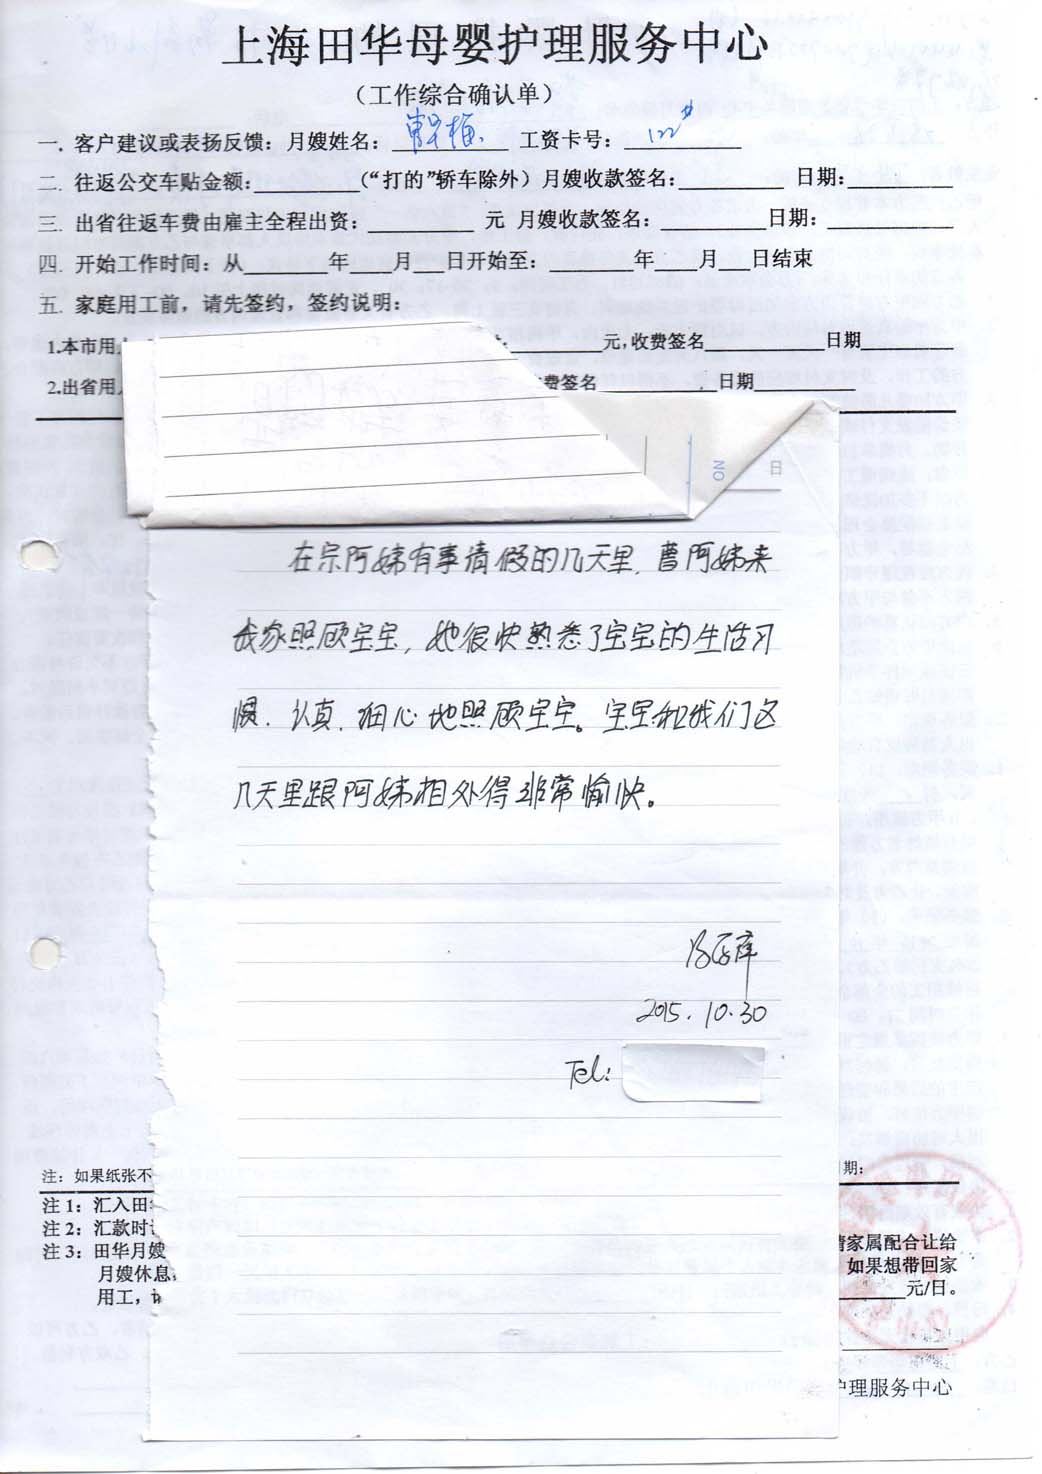 上海田华母婴护理服务中心
（工作综合确认单）
一. 客户建议或表扬反馈：月嫂姓名： 工资卡号：122#
二. 往返公交车贴金额：（“打的”轿车除外）月嫂收款签名： 日期：
三. 出省往返车费由雇主全程出资： 元 月嫂收款签名： 日期：
四. 开始工作时间：从 年 月 日开始至： 年 月 日结束
五. 家庭用工前，请先签约，签约说明：
1.本市用 元,收费签名 日期
2.出省用 费签名 日期
NO 日
在宗阿姨有事请假的几天里，曹阿姨来
我家照顾宝宝，她很快熟悉了宝宝的生活习
惯、认真、细心地照顾宝宝。宝宝和我们这
几天里跟阿姨相处得非常愉快。
2015.10.30
Tel:
注：如果纸张不 期：
注 1：汇入田
注 2：汇款时
注 3：田华月嫂 请家属配合让给
月嫂休息 如果想带回家
用工， 元/日。
护理服务中心